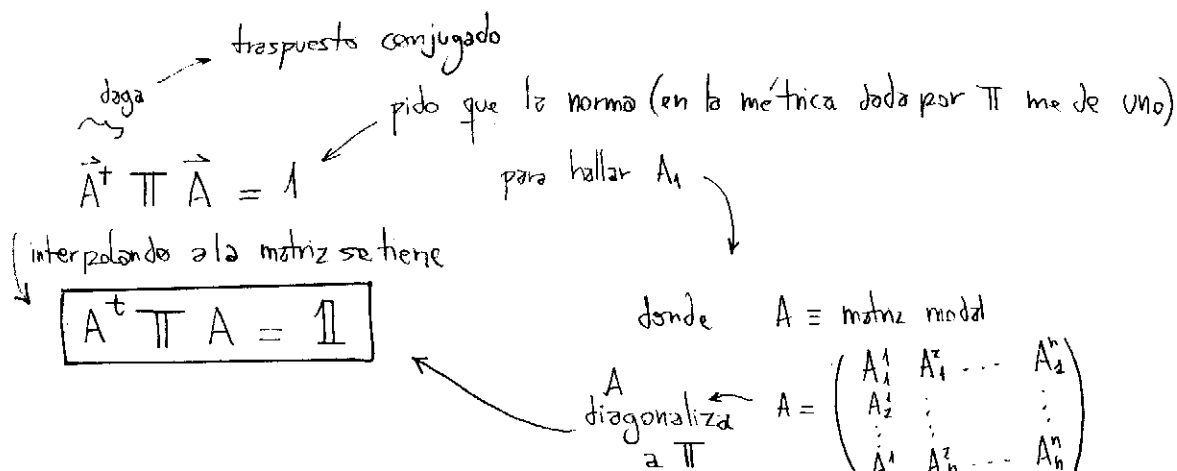 traspuesto conjugado
daga
pido que la norma (en la métrica dada por 𝕋 me de uno)
para hallar A₁
A⃗† 𝕋 A⃗ = 1
interpolando a la matriz se tiene
Aᵗ 𝕋 A = 𝟙
donde A ≡ matriz modal
A diagonaliza a 𝕋
A = ( A₁¹ A₁² ... A₁ⁿ
A₂¹ ⋮ ⋮
⋮
Aₙ¹ Aₙ² ... Aₙⁿ )